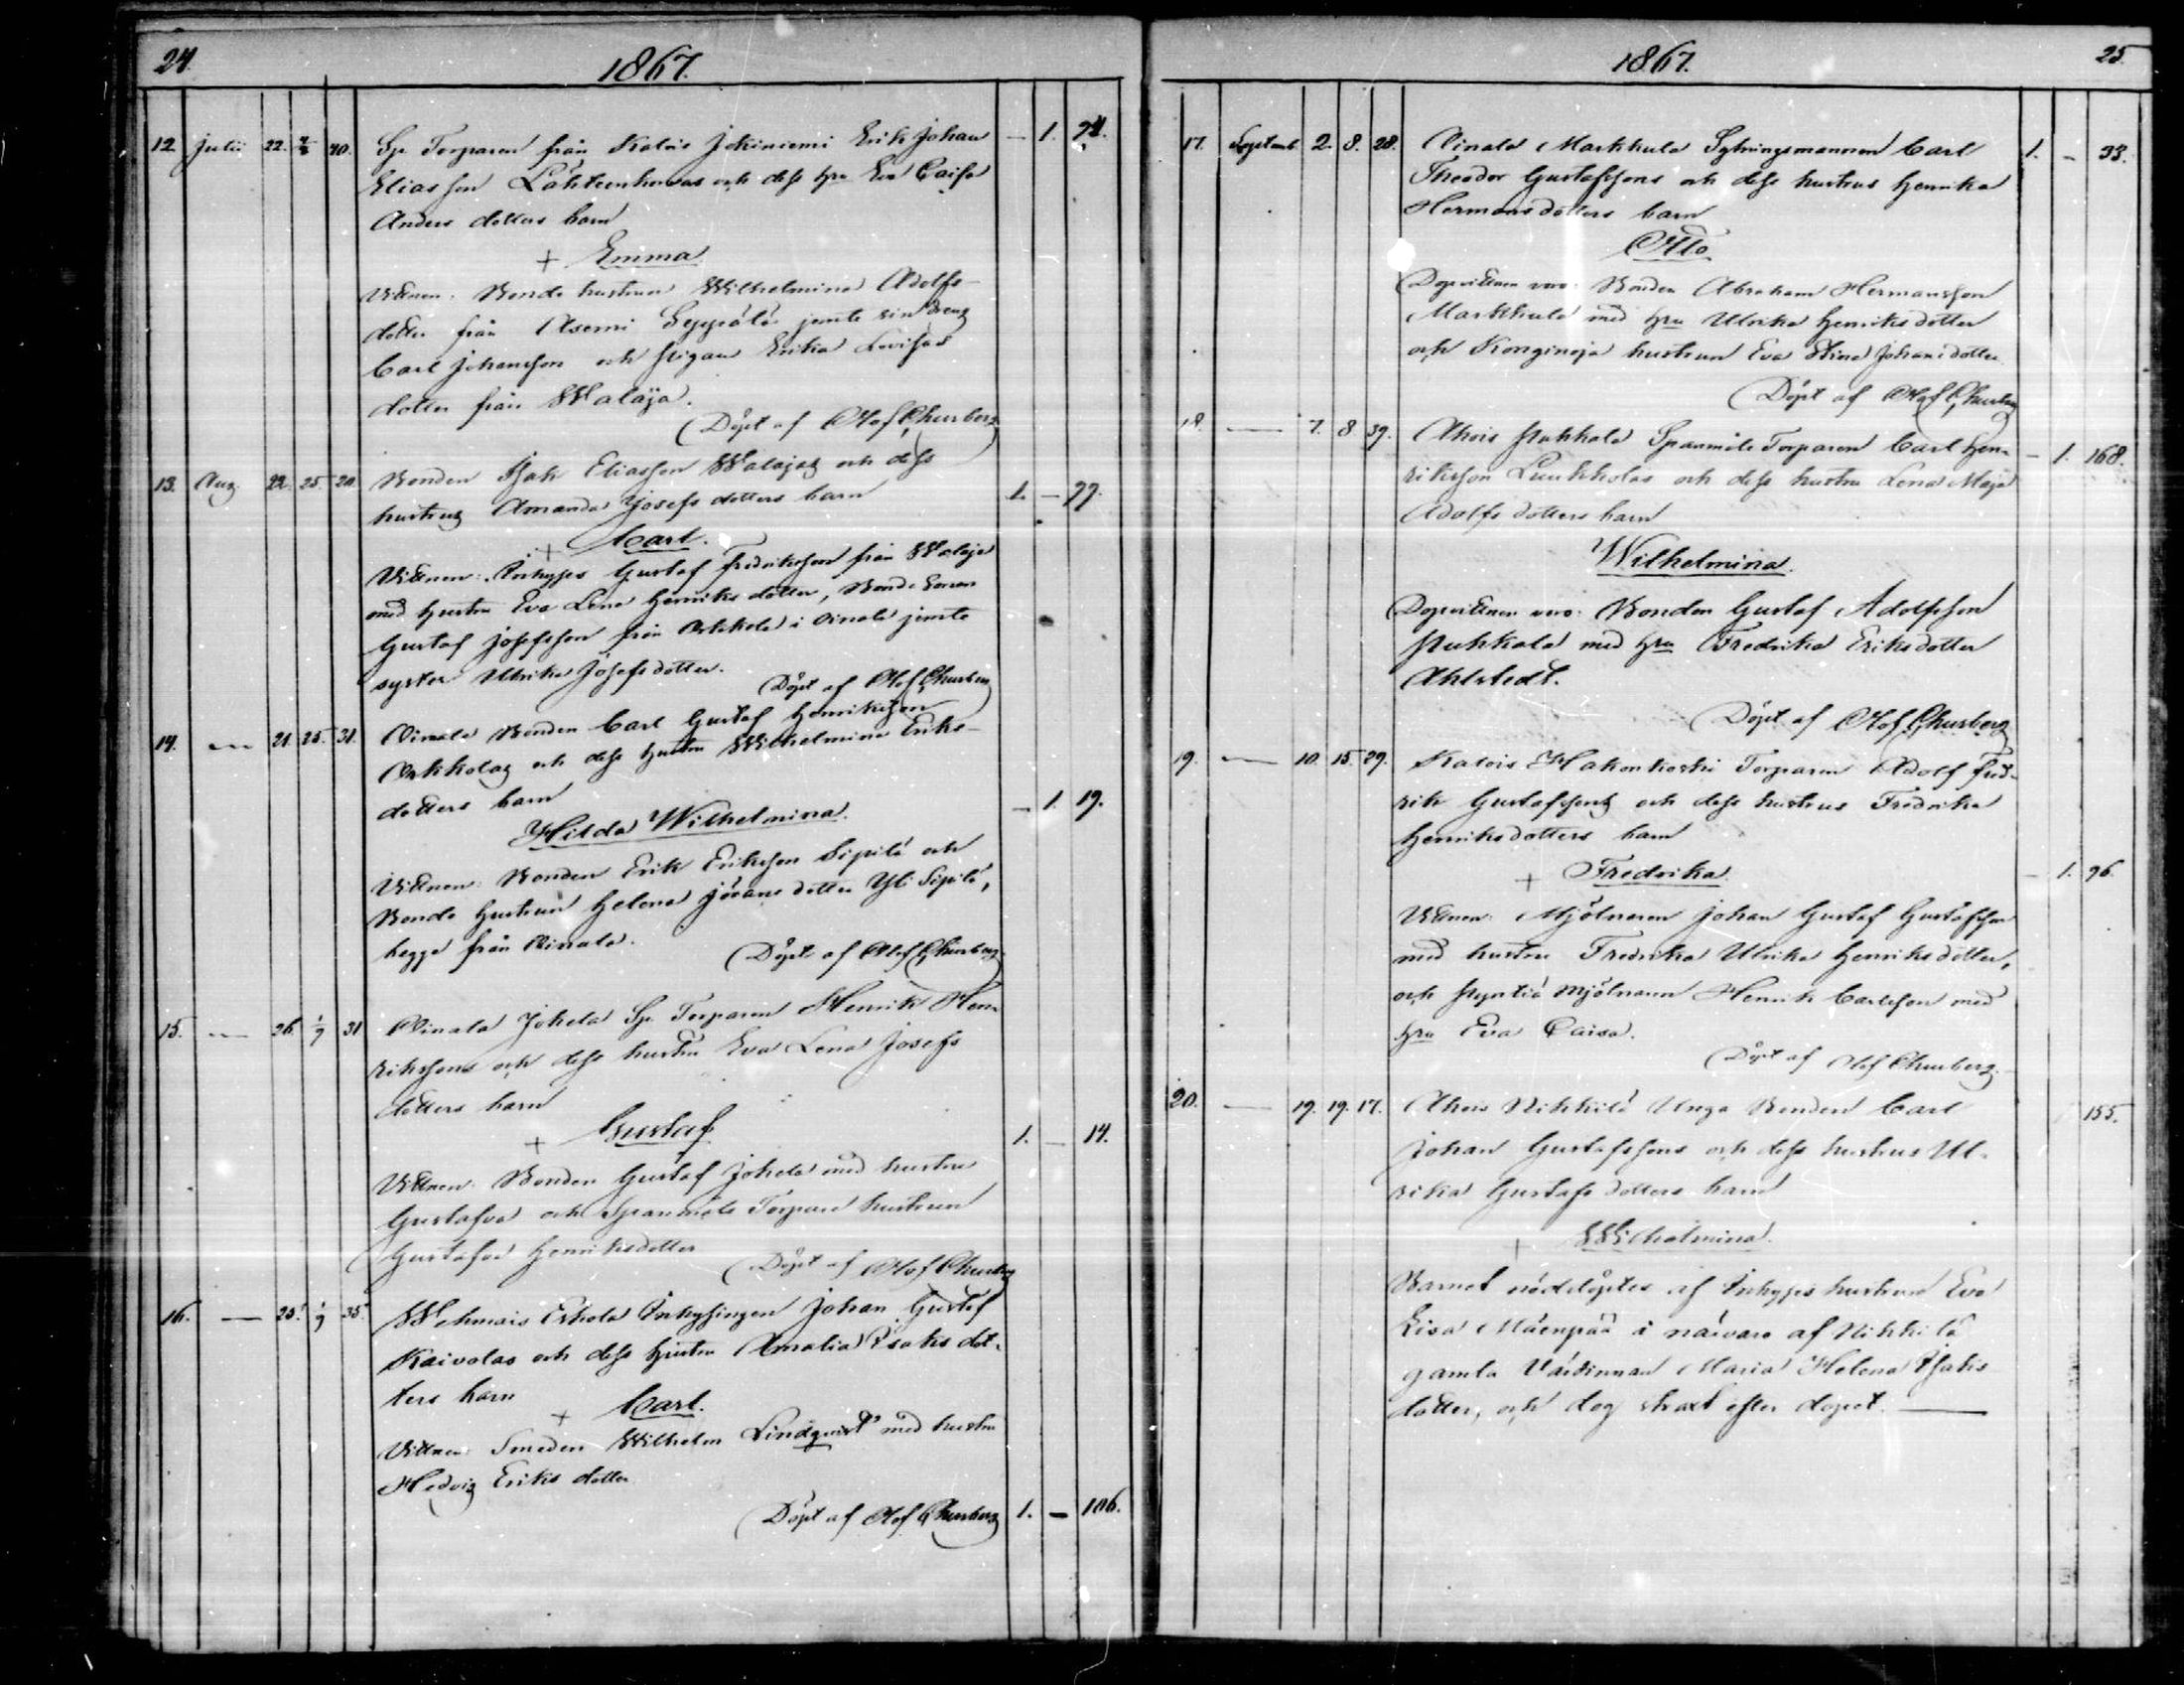 24.
1867.
12. Julii 22. 4/8 40. Sp. Torparen från Kalois Jokiniemi Erik Johan — 1. 24.
Eliasson Lähteenkorvas och dess hru Eva Caisa
Anders dotters barn
+ Emma
Vittnen: Bonde hustrun Wilhelmina Adolfs-
dotter från Asemi Seppälä jemte sin dreng
Carl Johansson och pigan Erika Lovisas
dotter från Walaja.
Döpt af Olof Churberg
13. Aug. 22. 25. 20. Bonden Isak Eliasson Walajas och dess
hustrus Amanda Josefs dotters barn 1. — 77.
+ Carl.
Vittnen: Inhyses Gustaf Fredriksson från Walaja
med hustru Eva Lena Henriks dotter, Bonde sonen
Gustaf Josefsson från i Oinala jemte
syster Ulrika Josefsdotter.
Döpt af Olof Churberg
14. — 21. 25. 31. Oinala Bonden Carl Gustaf Henriksson
Orkkolas och dess hustru Wilhelmina Eriks-
dotters barn — 1. 19.
Hilda Wilhelmina.
Vittnen: Bonden Erik Eriksson Sipilä och
Bonde hustrun Helena Jörans dotter Yli Sipilä,
begge från Oinala.
Döpt af Olof Churberg
15. — 26. 1/9 31 Oinala Johela Sp. Torparen Henrik Hen-
rikssons och dess hustru Eva Lena Josefs
dotters barn
+ Gustaf 1. — 14.
Vittnen: Bonden Gustaf Johela med hustru
Gustafva och Spanmåls Torpare hustrun
Gustafva Henriksdotter
Döpt af Olof Churberg
16. — 25. 1/9 35. Wehmais Eskola Inhysingen Johan Gustaf
Kaivolas och dess hustru Amalia Isaks dot-
ters barn
+ Carl.
Vittnen: Smeden Wilhelm Lindqvist med hustru
Hedvig Eriks dotter
Döpt af Olof Churberg 1. — 106.
1867.
25.
17. Septemb. 2. 8. 28. Oinala Markkula Sytningsmannen Carl 1. — 33.
Theodor Gustafssons och dess hustrus Henrika
Hermansdotters barn
Otto.
Dopvittnen voro: Bonden Abraham Hermansson
Markkula med hru Ulrika Henriksdotter
och Konginoja hustrun Eva Stina Johansdotter
Döpt af Olof Churberg
18. — 7. 8 39. Ahois Pukkala Spanmåls Torparen Carl Hen- — 1. 168.
riksson Luukkolas och dess hustru Lena Maja
Adolfs dotters barn
Wilhelmina.
Dopvittnen voro: Bonden Gustaf Adolfsson
Pukkala med hru Fredrika Eriksdotter
Ahlstedt.
Döpt af Olof Churberg
19. — 10. 15. 29. Kalois Hakonkoski Torparen Adolf Fred-
rik Gustafssons och dess hustrus Fredrika
Henriksdotters barn
+ Fredrika. — 1. 96.
Vittnen: Mjölnaren Johan Gustaf Gustafsson
med hustru Fredrika Ulrika Henriksdotter,
och Pyntiä Mjölnaren Henrik Carlsson med
hru Eva Caisa.
Döpt af Olof Churberg.
20. — 19. 19. 17. Ahois Nikkilä Unga Bonden Carl 155.
Johan Gustafssons och dess hustrus Ul-
rika Gustafs dotters barn
+ Wilhelmina.
Barnet nöddöptes af Inhyses hustrun Eva
Lisa Mäenpää i närvaro af Nikkilä
gamla Värdinnan Maria Helena Isaks
dotter, och dog straxt efter dopet. —